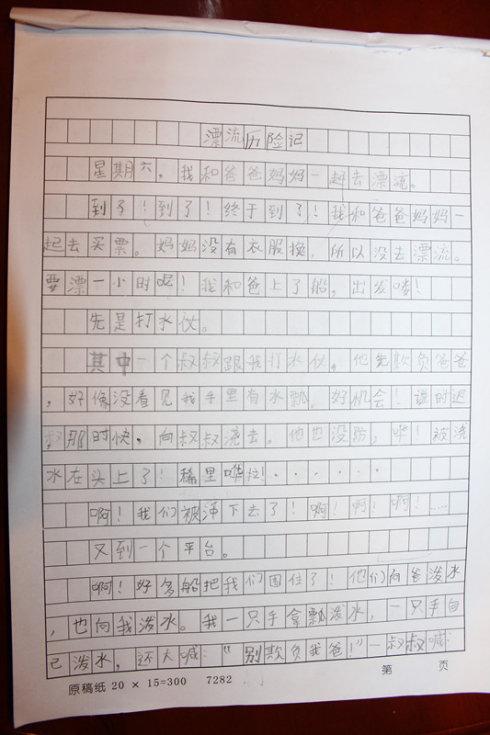 漂流历险记
星期六，我和爸爸妈妈一起去漂流。
到了！到了！终于到了！我和爸爸妈妈一
起去买票。妈妈没有衣服换，所以没去漂流。
要漂一小时呢！我和爸上了船，出发喽！
先是打水仗。
其中一个叔叔跟我打水仗。他先欺负爸爸
，好像没看见我手里有水瓢。好机会！说时迟
那时快，向叔叔浇去。他也没防，哗！被浇
水在头上了！稀里哗拉！······
啊！我们被冲下去了！啊！啊！啊！……
又到一个平台。
啊！好多船把我们围住了！他们向爸泼水
，也向我泼水。我一只手拿瓢泼水，一只手自
己泼水，还大喊：“别欺负我爸！”一叔叔喊：
原稿纸 20 × 15=300 7282 第 页